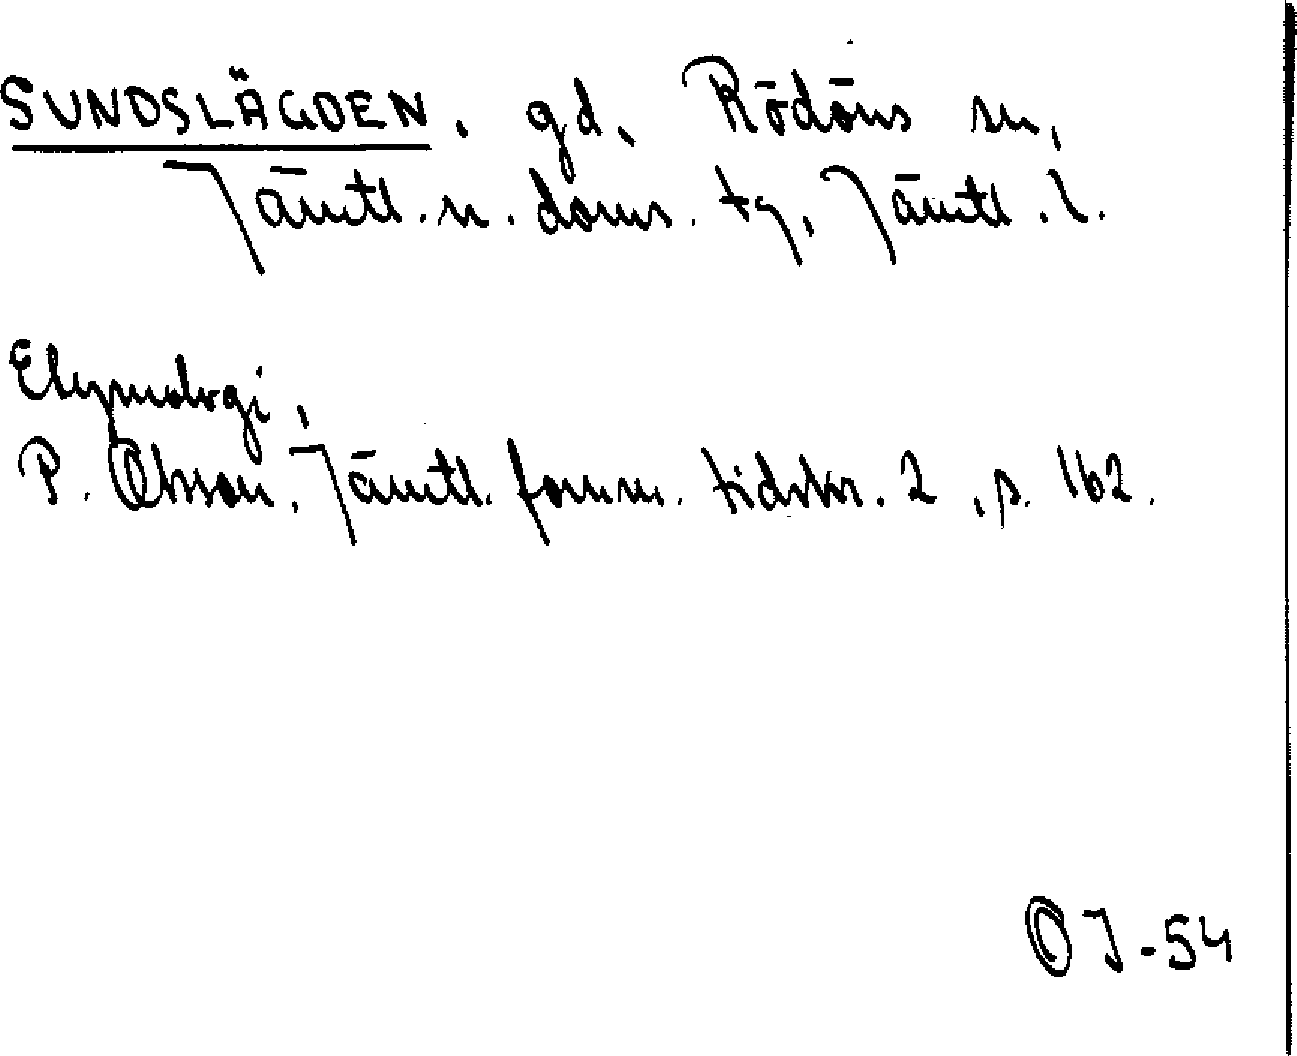 SUNDSLÄGDEN. gd, Rödöns sn,
Jämtl. n. doms. tg, Jämtl. l.
Etymologi,
P. Olsson, Jämtl. fornm. tidskr. 2, s. 162.
OJ-54